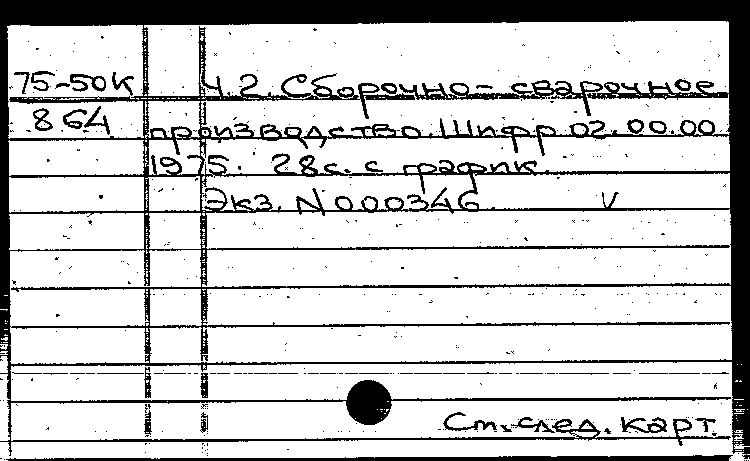 75-50К Ч.2. Сборочно-сварочное
864 производство. Шифр 02.00.00
1975. 28с. с график.
Экз. N000346. V
См. след. карт.